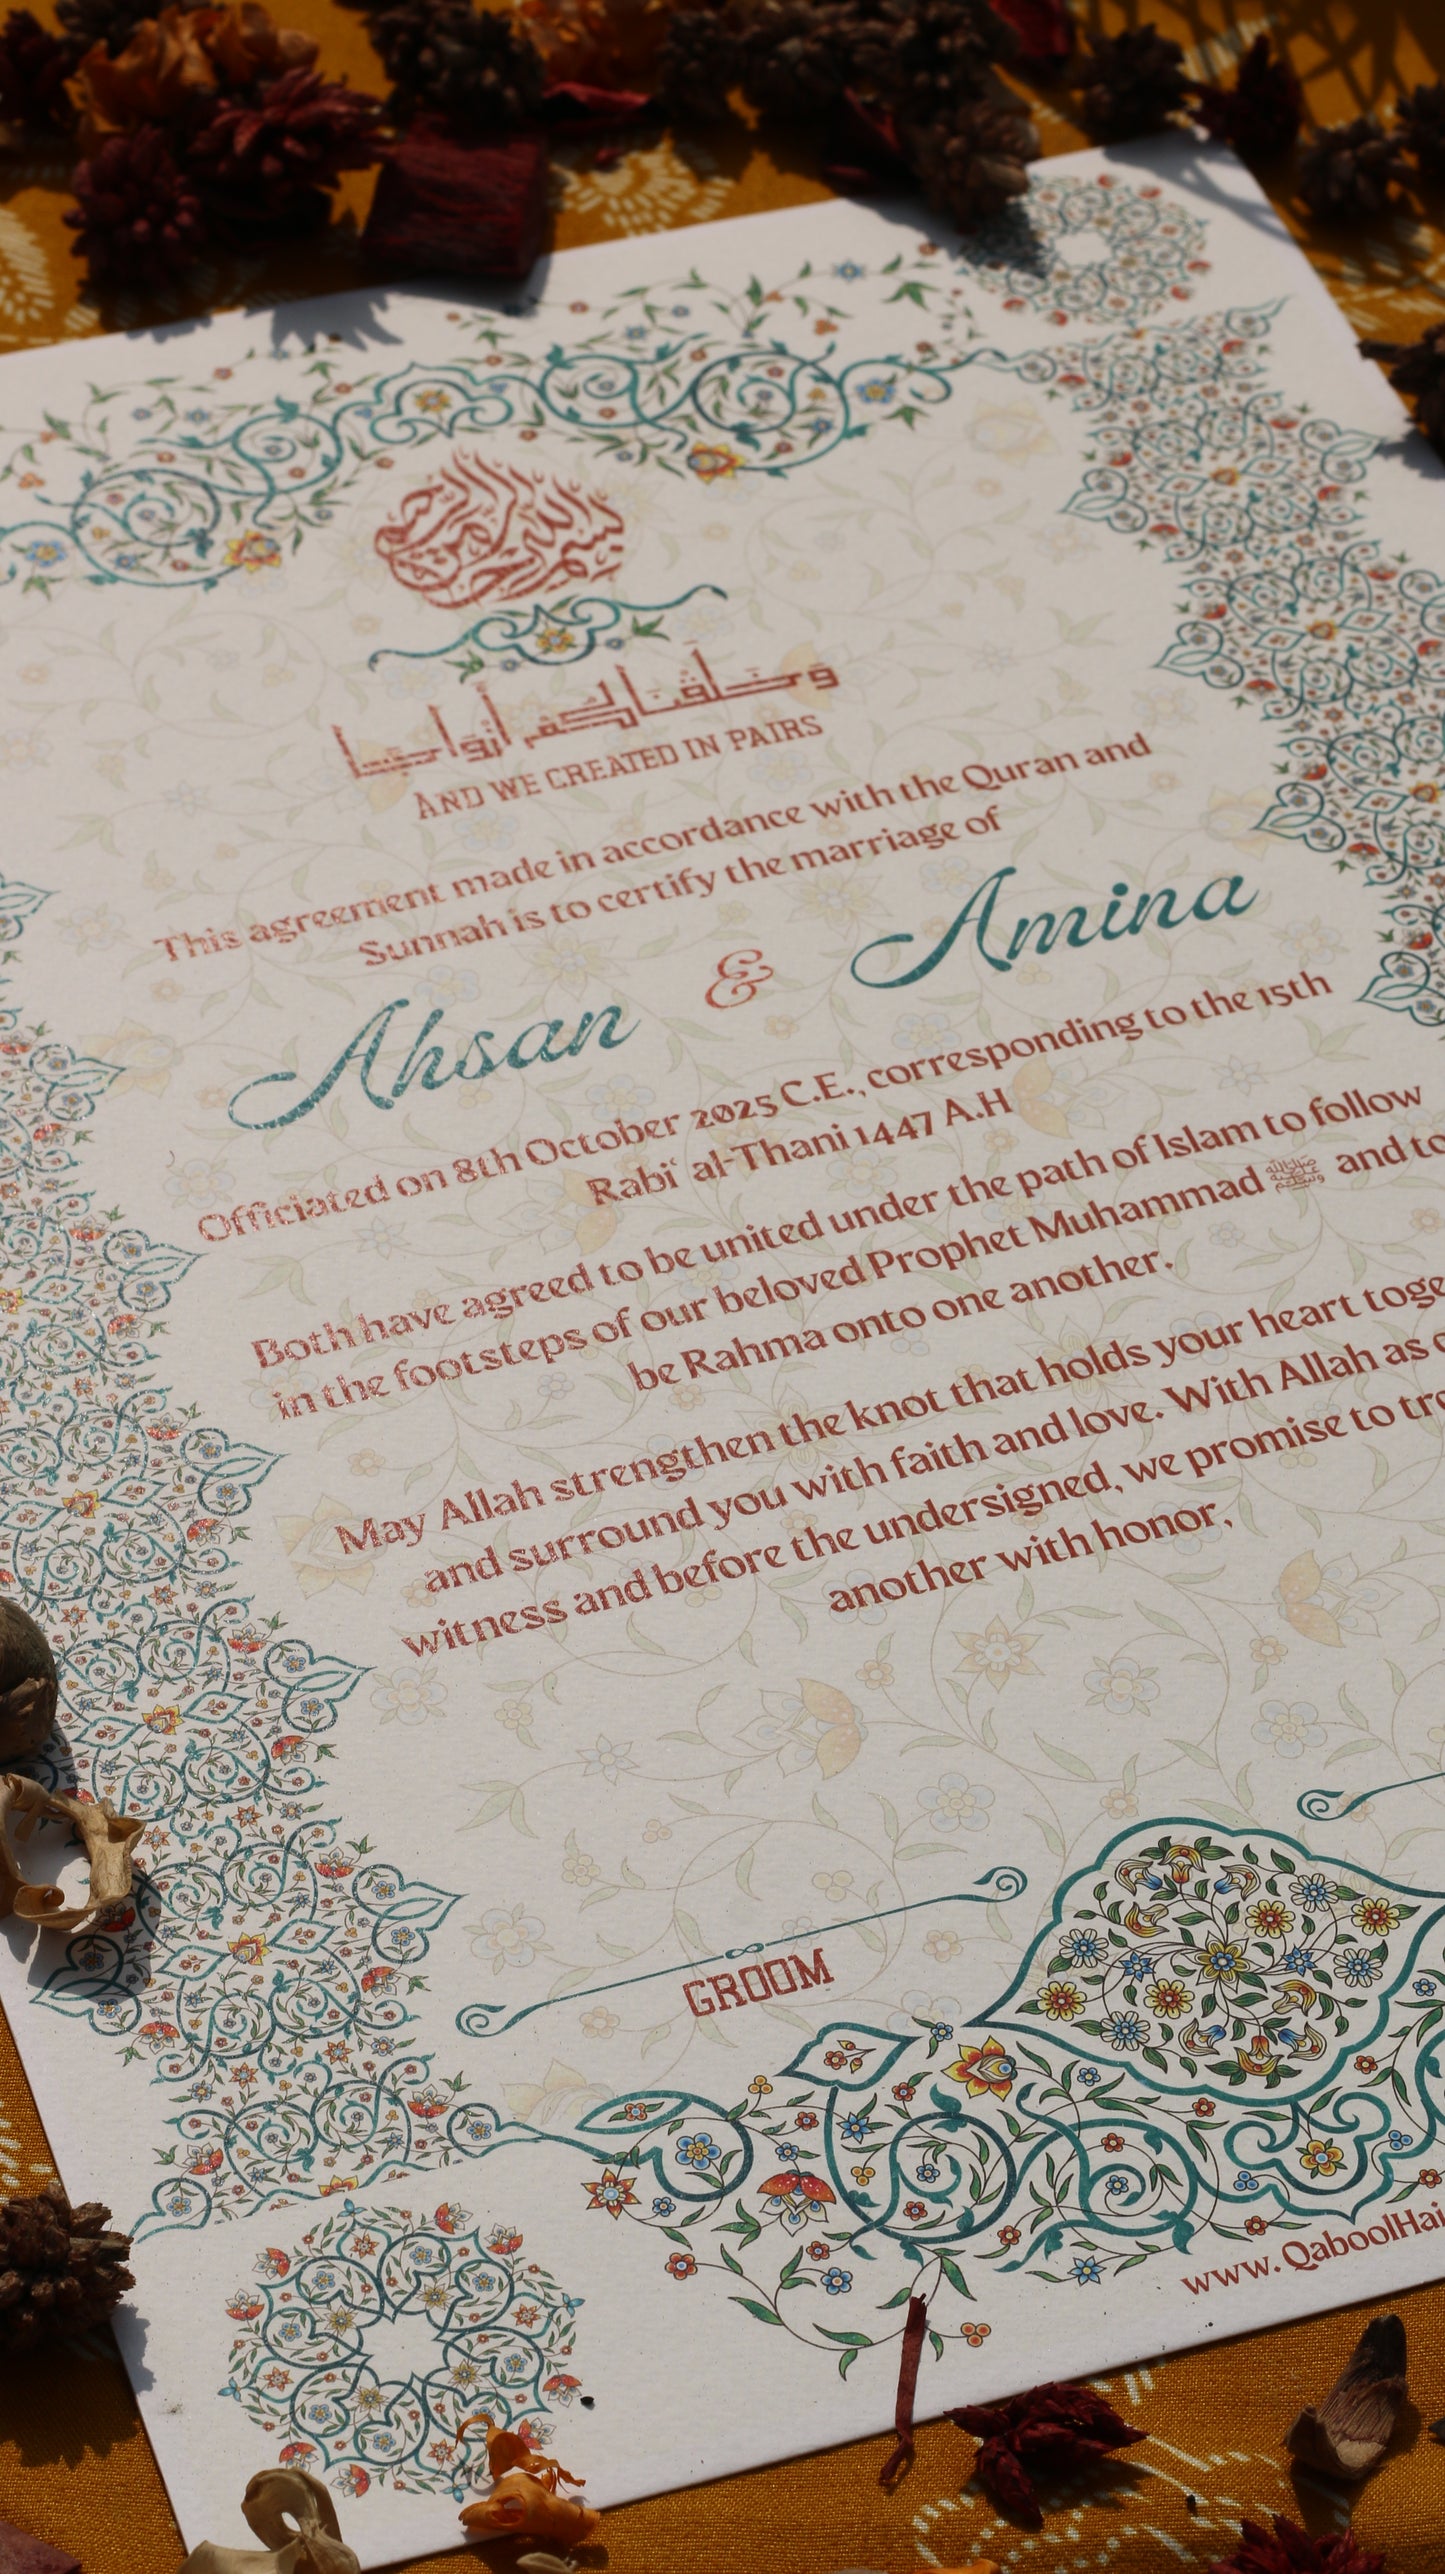 بسم الله الرحمن الرحيم
وَخَلَقْنَاكُمْ أَزْوَاجًا
AND WE CREATED IN PAIRS
This agreement made in accordance with the Quran and
Sunnah is to certify the marriage of
Ahsan & Amina
Officiated on 8th October 2025 C.E., corresponding to the 15th
Rabi‘ al-Thani 1447 A.H
Both have agreed to be united under the path of Islam to follow
in the footsteps of our beloved Prophet Muhammad ﷺ and to
be Rahma onto one another.
May Allah strengthen the knot that holds your heart
and surround you with faith and love. With Allah as
witness and before the undersigned, we promise to
another with honor,
GROOM
www.QaboolHai